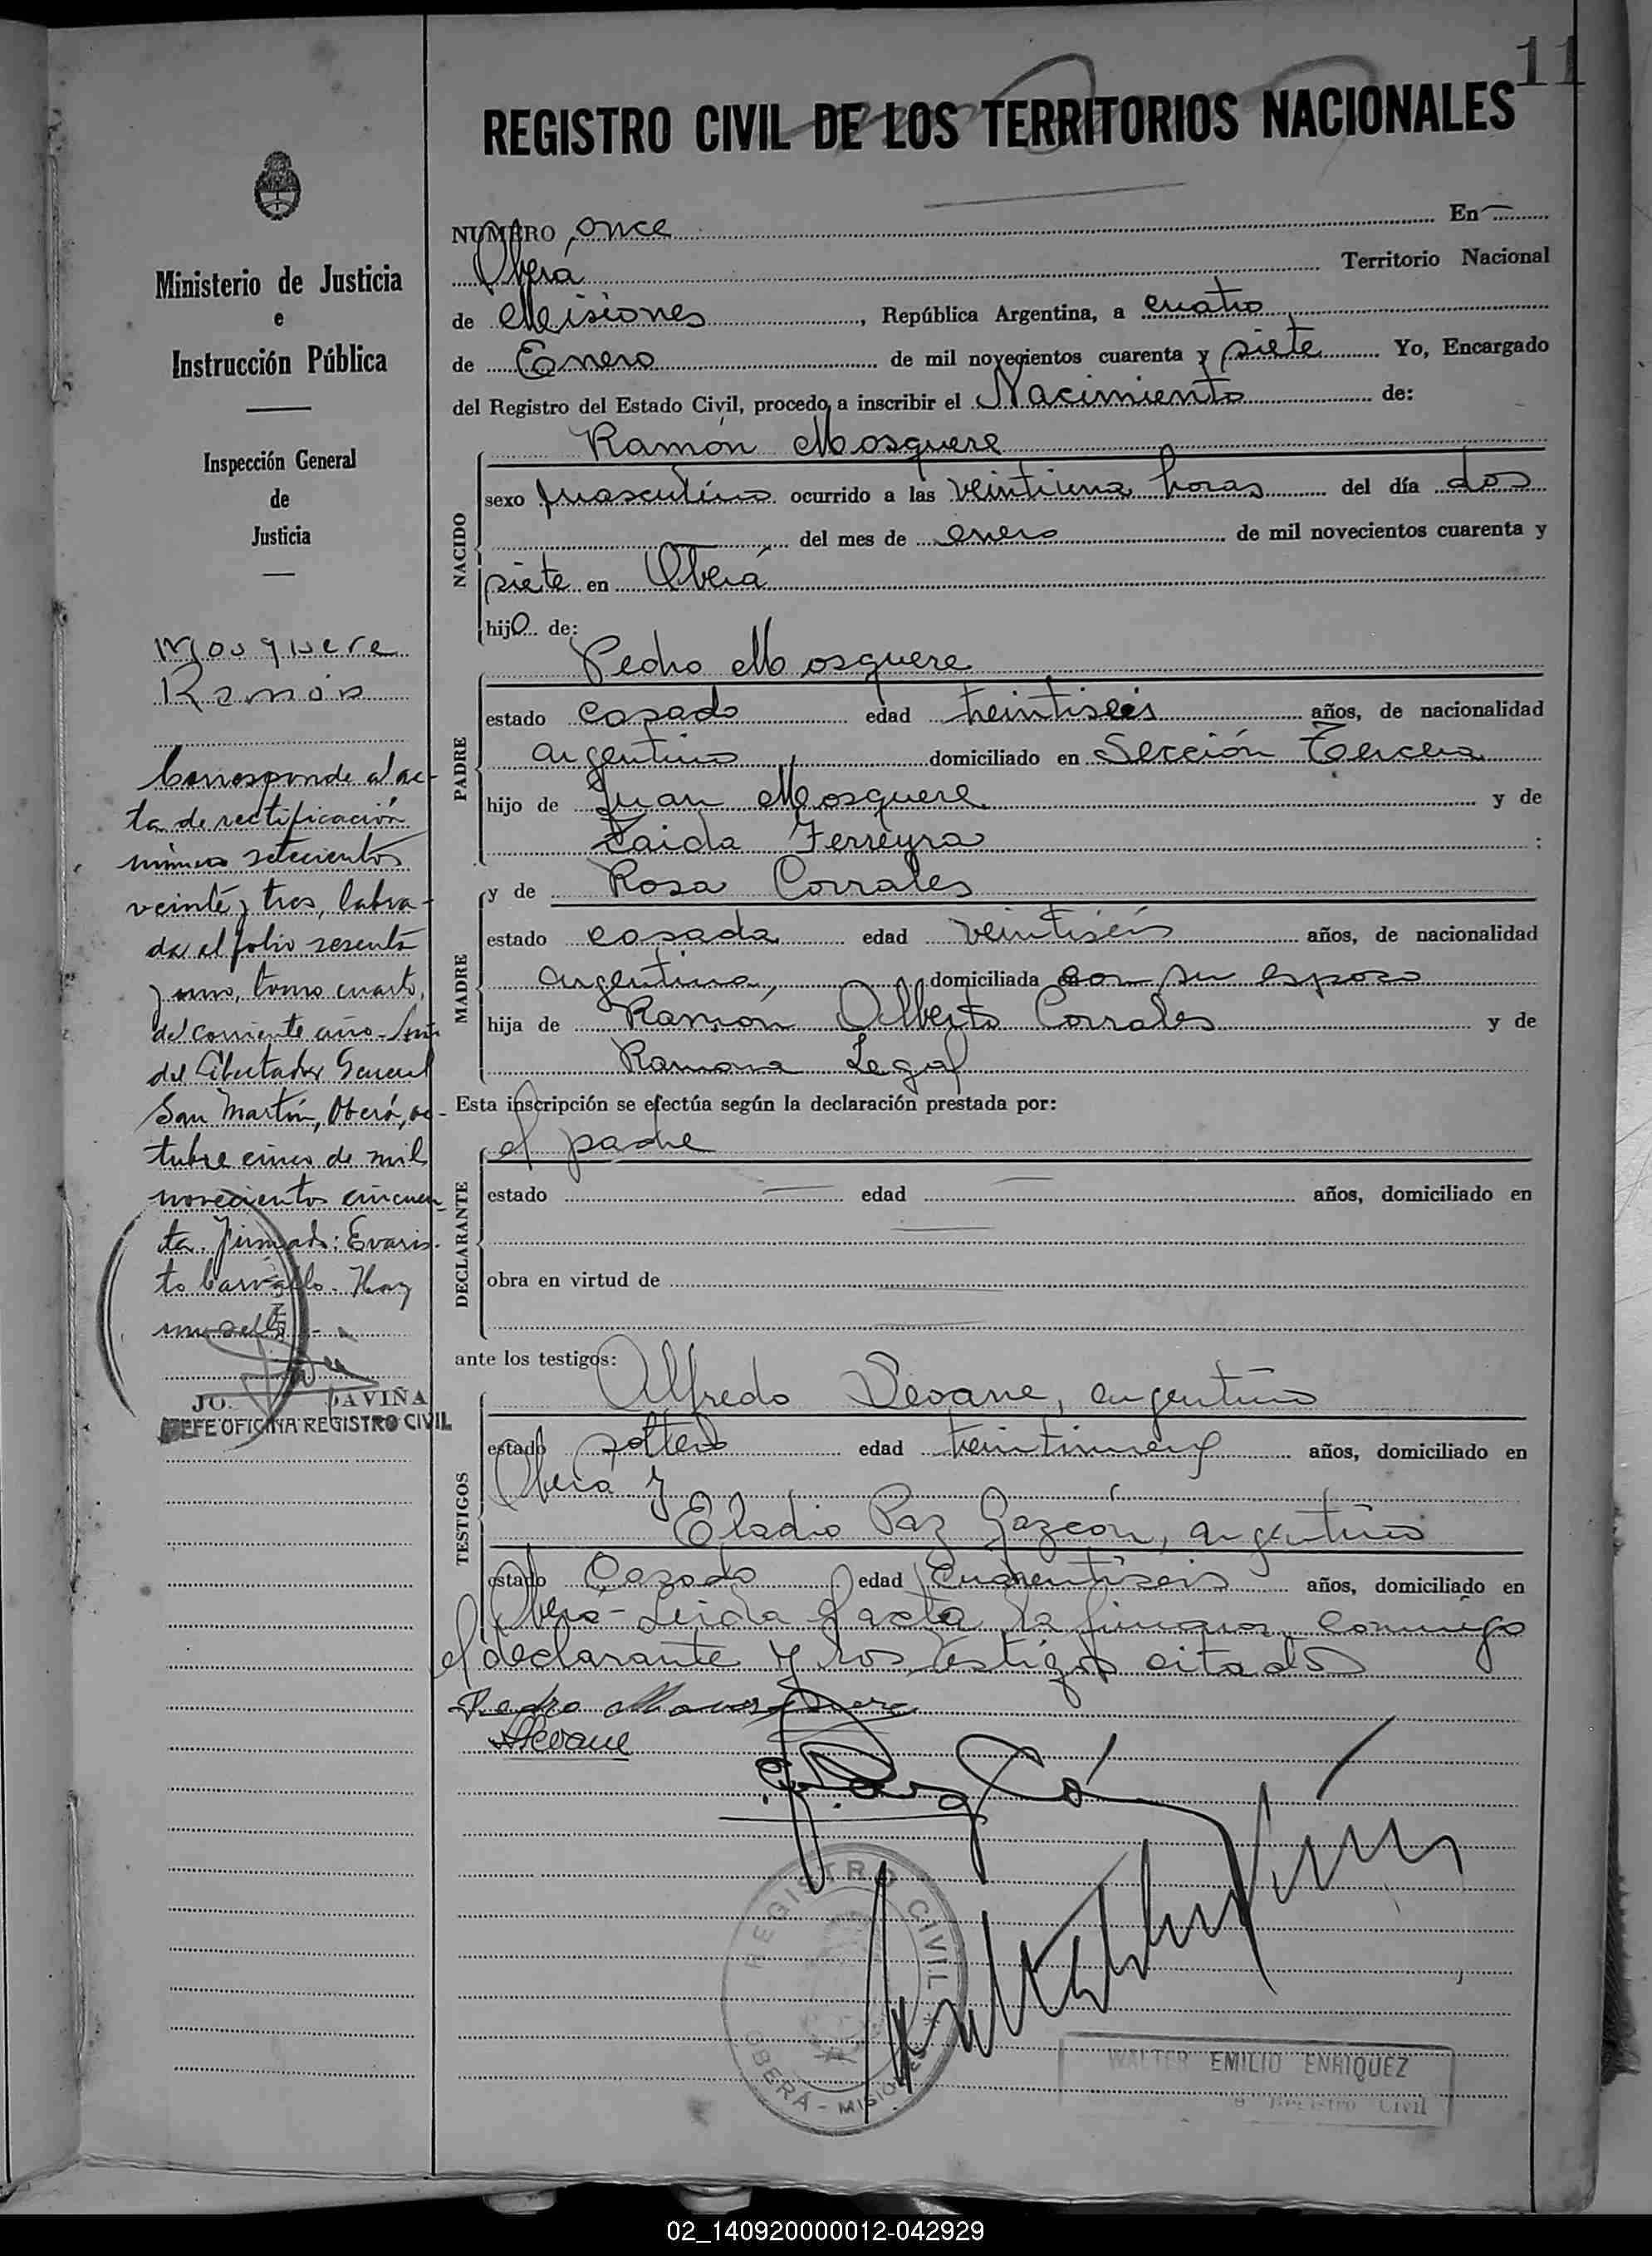 11
REGISTRO CIVIL DE LOS TERRITORIOS NACIONALES
Ministerio de Justicia
e
Instrucción Pública
Inspección General
de
Justicia
Mosquere
Ramón
Corresponde al ac-
ta de rectificación
número setecientos
veinte y tres, labra-
da al folio sesenta
y uno, tomo cuarto,
del corriente año-
del Libertador General
San Martín, Oberá, oc-
tubre cinco de mil
novecientos cincuen
ta. Firmado: Evaris-
to Carvallo. Hay
un sello.-
JO. DAVIÑA
JEFE OFICINA REGISTRO CIVIL
NUMERO once En
Oberá Territorio Nacional
de Misiones, República Argentina, a cuatro
de Enero de mil novecientos cuarenta y siete Yo, Encargado
del Registro del Estado Civil, procedo a inscribir el Nacimiento de:
NACIDO
Ramón Mosquere
sexo masculino ocurrido a las veintiuna horas del día dos
del mes de enero de mil novecientos cuarenta y
siete en Oberá
hijo de:
PADRE
Pedro Mosquere
estado casado edad treintiseis años, de nacionalidad
argentino domiciliado en Sección Tercera
hijo de Juan Mosquere y de
Zaida Ferreyra :
MADRE
y de Rosa Corrales
estado casada edad veintiseis años, de nacionalidad
argentina, domiciliada con su esposo
hija de Ramón Alberto Corrales y de
Ramona Legal
Esta inscripción se efectúa según la declaración prestada por:
DECLARANTE
el padre
estado edad años, domiciliado en
obra en virtud de
ante los testigos:
TESTIGOS
Alfredo Seoane, argentino
estado soltero edad treintinueve años, domiciliado en
Oberá y
Eladio Paz Gazcón, argentino
estado Casado edad Cuarentiseis años, domiciliado en
Oberá - Leida el acta la firman conmigo
el declarante y los testigos citados
Pedro Mosquere
ASeoane
REGISTRO CIVIL
OBERÁ - MISIONES
WALTER EMILIO ENRIQUEZ
Registro Civil
02_140920000012-042929